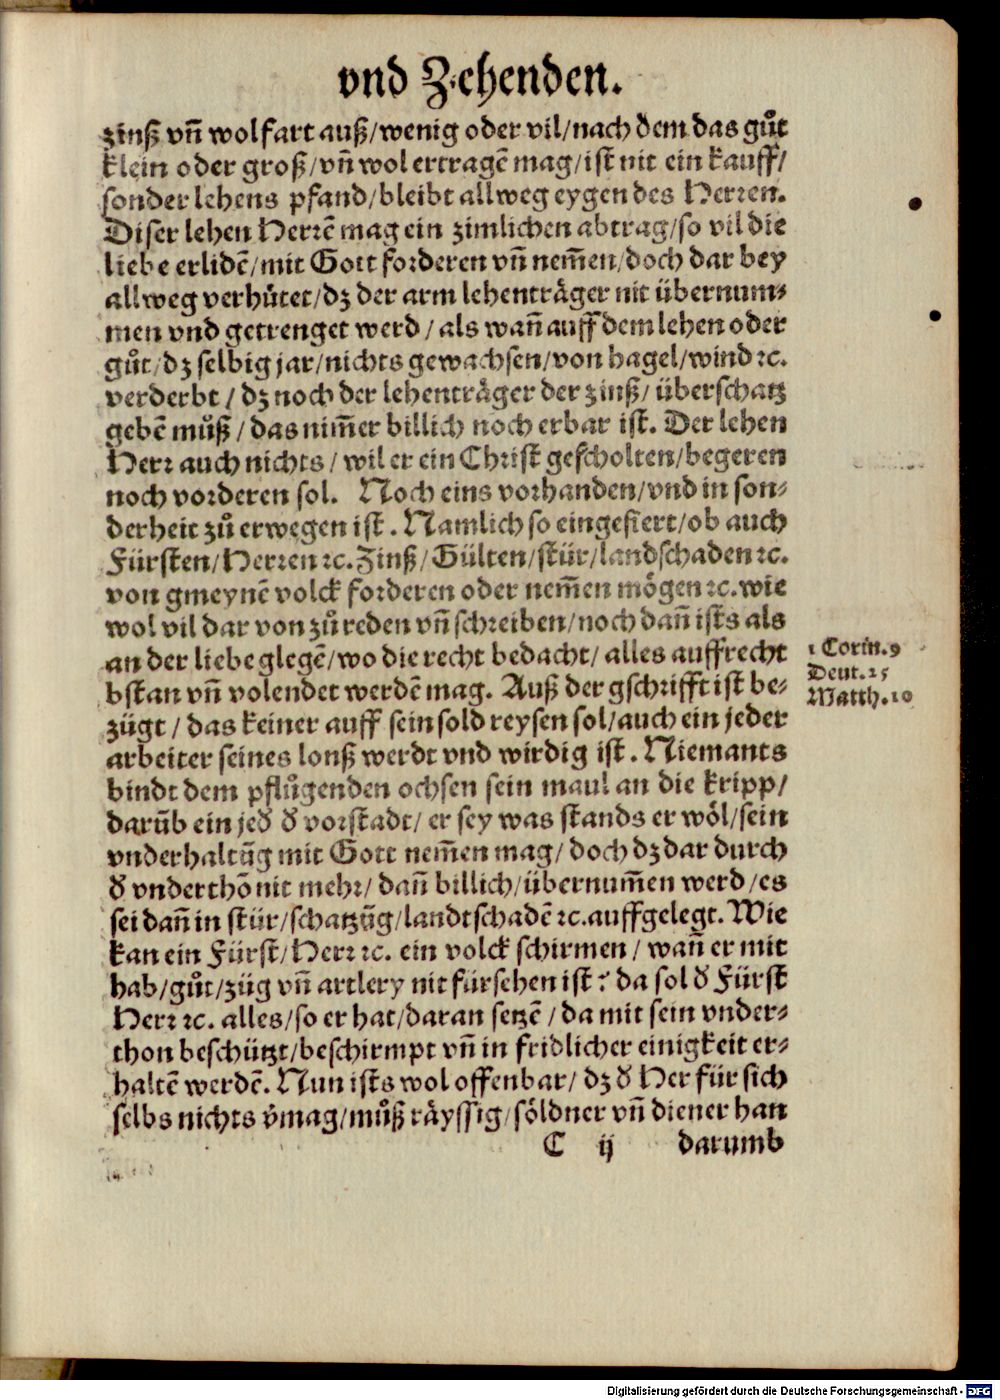 vnd Zehenden.
zinß vñ wolfart auß/wenig oder vil/nach dem das gůt
klein oder groß/vñ wol ertragẽ mag/ist nit ein kauff/
sonder lehens pfand/bleibt allweg eygen des Herren.
Diser lehen Herrẽ mag ein zimlichen abtrag/so vil die
liebe erlidẽ/mit Gott forderen vñ nem̃en/doch dar bey
allweg verhůtet/dz der arm lehenträger nit übernum⸗
men vnd getrenget werd/als wañ auff dem lehen oder
gůt/dz selbig jar/nichts gewachsen/von hagel/wind ꝛc.
verderbt/dz noch der lehenträger der zinß/überschatz
gebẽ můß/das nim̃er billich noch erbar ist. Der lehen
Herr auch nichts/wil er ein Christ gescholten/begeren
noch vorderen sol. Noch eins vorhanden/vnd in son⸗
derheit zů erwegen ist. Namlich so eingefiert/ob auch
Fürsten/Herren ꝛc. Zinß/Gülten/stür/landschaden ꝛc.
von gmeynẽ volck forderen oder nem̃en mögen ꝛc. wie
wol vil dar von zů reden vñ schreiben/noch dañ ists als
an der liebe glegẽ/wo die recht bedacht/alles auffrecht
bstan vñ volendet werdẽ mag. Auß der gschrifft ist be⸗
zügt/das keiner auff sein sold reysen sol/auch ein jeder
arbeiter seines lonß werdt vnd wirdig ist. Niemants
bindt dem pflůgenden ochsen sein maul an die kripp/
darüb ein jeð ð vorstadt/er sey was stands er wöl/sein
vnderhaltũg mit Gott nem̃en mag/doch dz dar durch
ð vnderthõ nit mehr/dañ billich/übernum̃en werd/es
sei dañ in stür/schatzũg/landtschadẽ ꝛc. auffgelegt. Wie
kan ein Fürst/Herr ꝛc. ein volck schirmen/wañ er mit
hab/gůt/züg vñ artlery nit fürsehen ist? da sol ð Fürst
Herr ꝛc. alles/so er hat/daran setzẽ/da mit sein vnder⸗
thon beschützt/beschirmpt vñ in fridlicher einigkeit er⸗
haltẽ werdẽ. Nun ists wol offenbar/dz ð Her für sich
selbs nichts v̈mag/můß räyssig/söldner vñ diener han
C ij darumb
1 Corin. 9
Deut. 25
Matth. 10
Digitalisierung gefördert durch die Deutsche Forschungsgemeinschaft - DFG